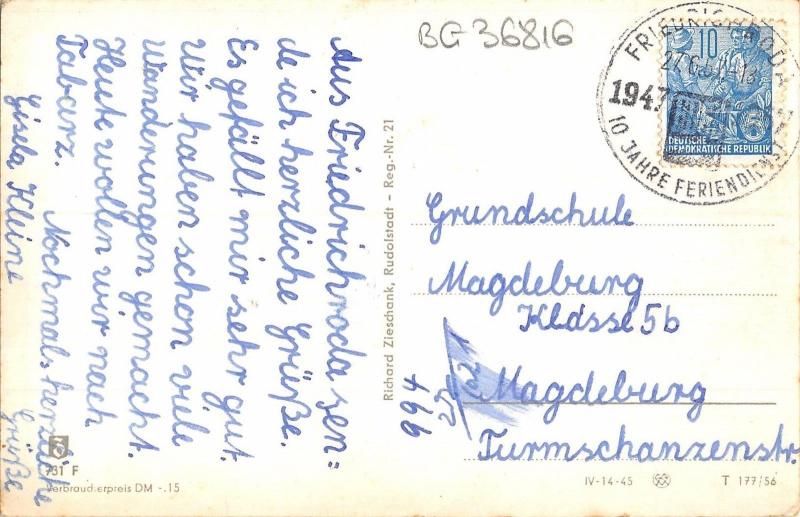 BG 36816
Aus Friedrichroda sen=
de ich herzliche Grüße.
Es gefällt mir sehr gut.
Wir haben schon viele
Wanderungen gemacht.
Heute wollen wir nach
Tabarz.
Nochmals herzliche
Grüße
Gisela Kleine
Richard Zieschank, Rudolstadt – Reg.-Nr. 21
FRIEDRICHRODA
1947
10 JAHRE FERIENDIENST
10
DEUTSCHE
DEMOKRATISCHE REPUBLIK
Grundschule
Magdeburg
Klasse 5b
Magdeburg
Turmschanzenstr.
731 F
Verbraucherpreis DM -.15
IV-14-45
T 177/56